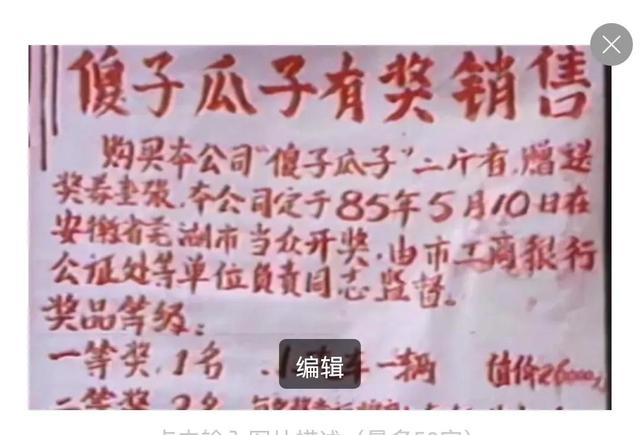 傻子瓜子有奖销售
购买本公司“傻子瓜子”二斤者,赠送
奖券壹張.本公司定于85年5月10日在
安徽省芜湖市当众开奖.由市工商银行
公证处等单位负责同志监督。
奖品等级:
一等奖.1名 一辆 值价26000元
编辑
二等奖